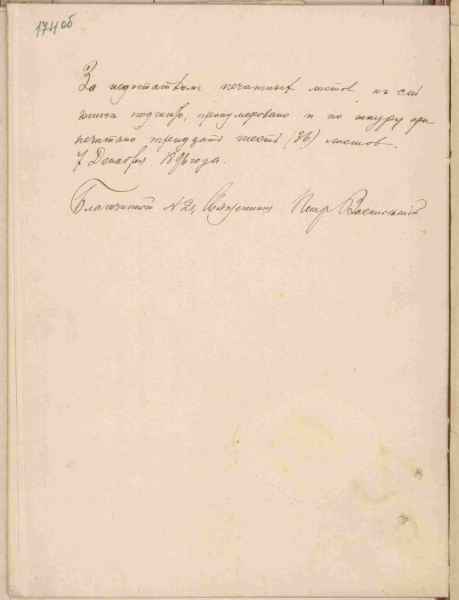 174 об
За недостаткомъ печатныхъ листовъ, къ сей
книгѣ подшито, пронумеровано и по шнуру при-
печатано тридцать шесть (36) листовъ.
7 Декабря 1896 года.
Благочинный № 2, Священникъ Петръ